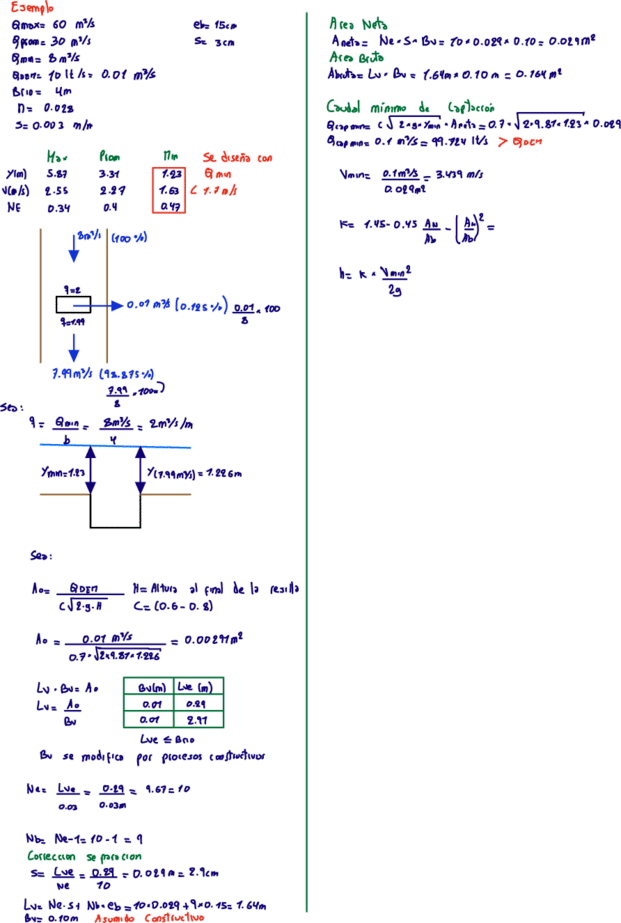 Ejemplo
Qmax= 60 m³/s
eb= 15cm
Qprom= 30 m³/s
S= 3cm
Qmin= 8m³/s
QDEM= 10 lt/s= 0.01 m³/s
Brio= 4m
n= 0.028
S=0.003 m/m
Max Prom Min Se diseña con
Y(m) 5.87 3.31 1.23 Qmin
V(m/s) 2.55 2.27 1.63 < 1.7 m/s
NF 0.34 0.4 0.47
8m³/s (100%)
q=2
0.01 m³/s (0.125%) 0.01/8 * 100
q=1.99
7.99m³/s (98.875%)
7.99/8 * 100
Sea:
q= Qmin/b = 8m³/s/4 = 2m³/s/m
Ymin=1.23
Y(7.99m³/s) = 1.226m
Sea:
Ao= QDEM/C√2·g·H H= Altura al final de la rejilla
C= (0.6-0.8)
Ao = 0.01 m³/s/0.7*√2*9.81*1.226 = 0.00291m²
Lv · Bv= Ao
Lv= Ao/Bv
Bv(m) Lve (m)
0.01 0.29
0.01 2.91
Lve ≤ Brio
Bv se modifica por procesos constructivos
Ne= Lve/0.03 = 0.29/0.03m = 9.67=10
Nb= Ne-1=10-1 = 9
Correccion separacion
S= Lve/Ne = 0.29/10 = 0.029m= 2.9cm
Lv= Ne·S+ Nb*eb=10*0.029+9*0.15=1.64m
Bv= 0.10m Asumido Constructivo
Area Neta
Aneta= Ne*S*Bv=10*0.029*0.10=0.029m²
Area Bruta
Abruta= Lv · Bv= 1.64m*0.10m = 0.164m²
Caudal mínimo de Captación
Qcap min= C√2*g*Ymin*Aneta=0.7*√2*9.81*1.23*0.029
Qcap min= 0.1 m³/s= 99.724 lt/s > QDEM
Vmin= 0.1m³/s/0.029m² = 3.439 m/s
K= 1.45-0.45 AN/Ab - (AN/Ab)² =
h= K * Vmin²/2g